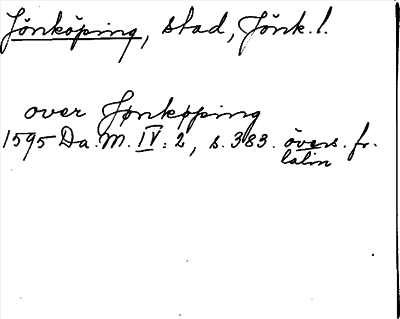 Jönköping, stad, Jönk. l.
over Jønkøping
1595 Da. M. IV: 2, s. 383. övers. fr.
latin